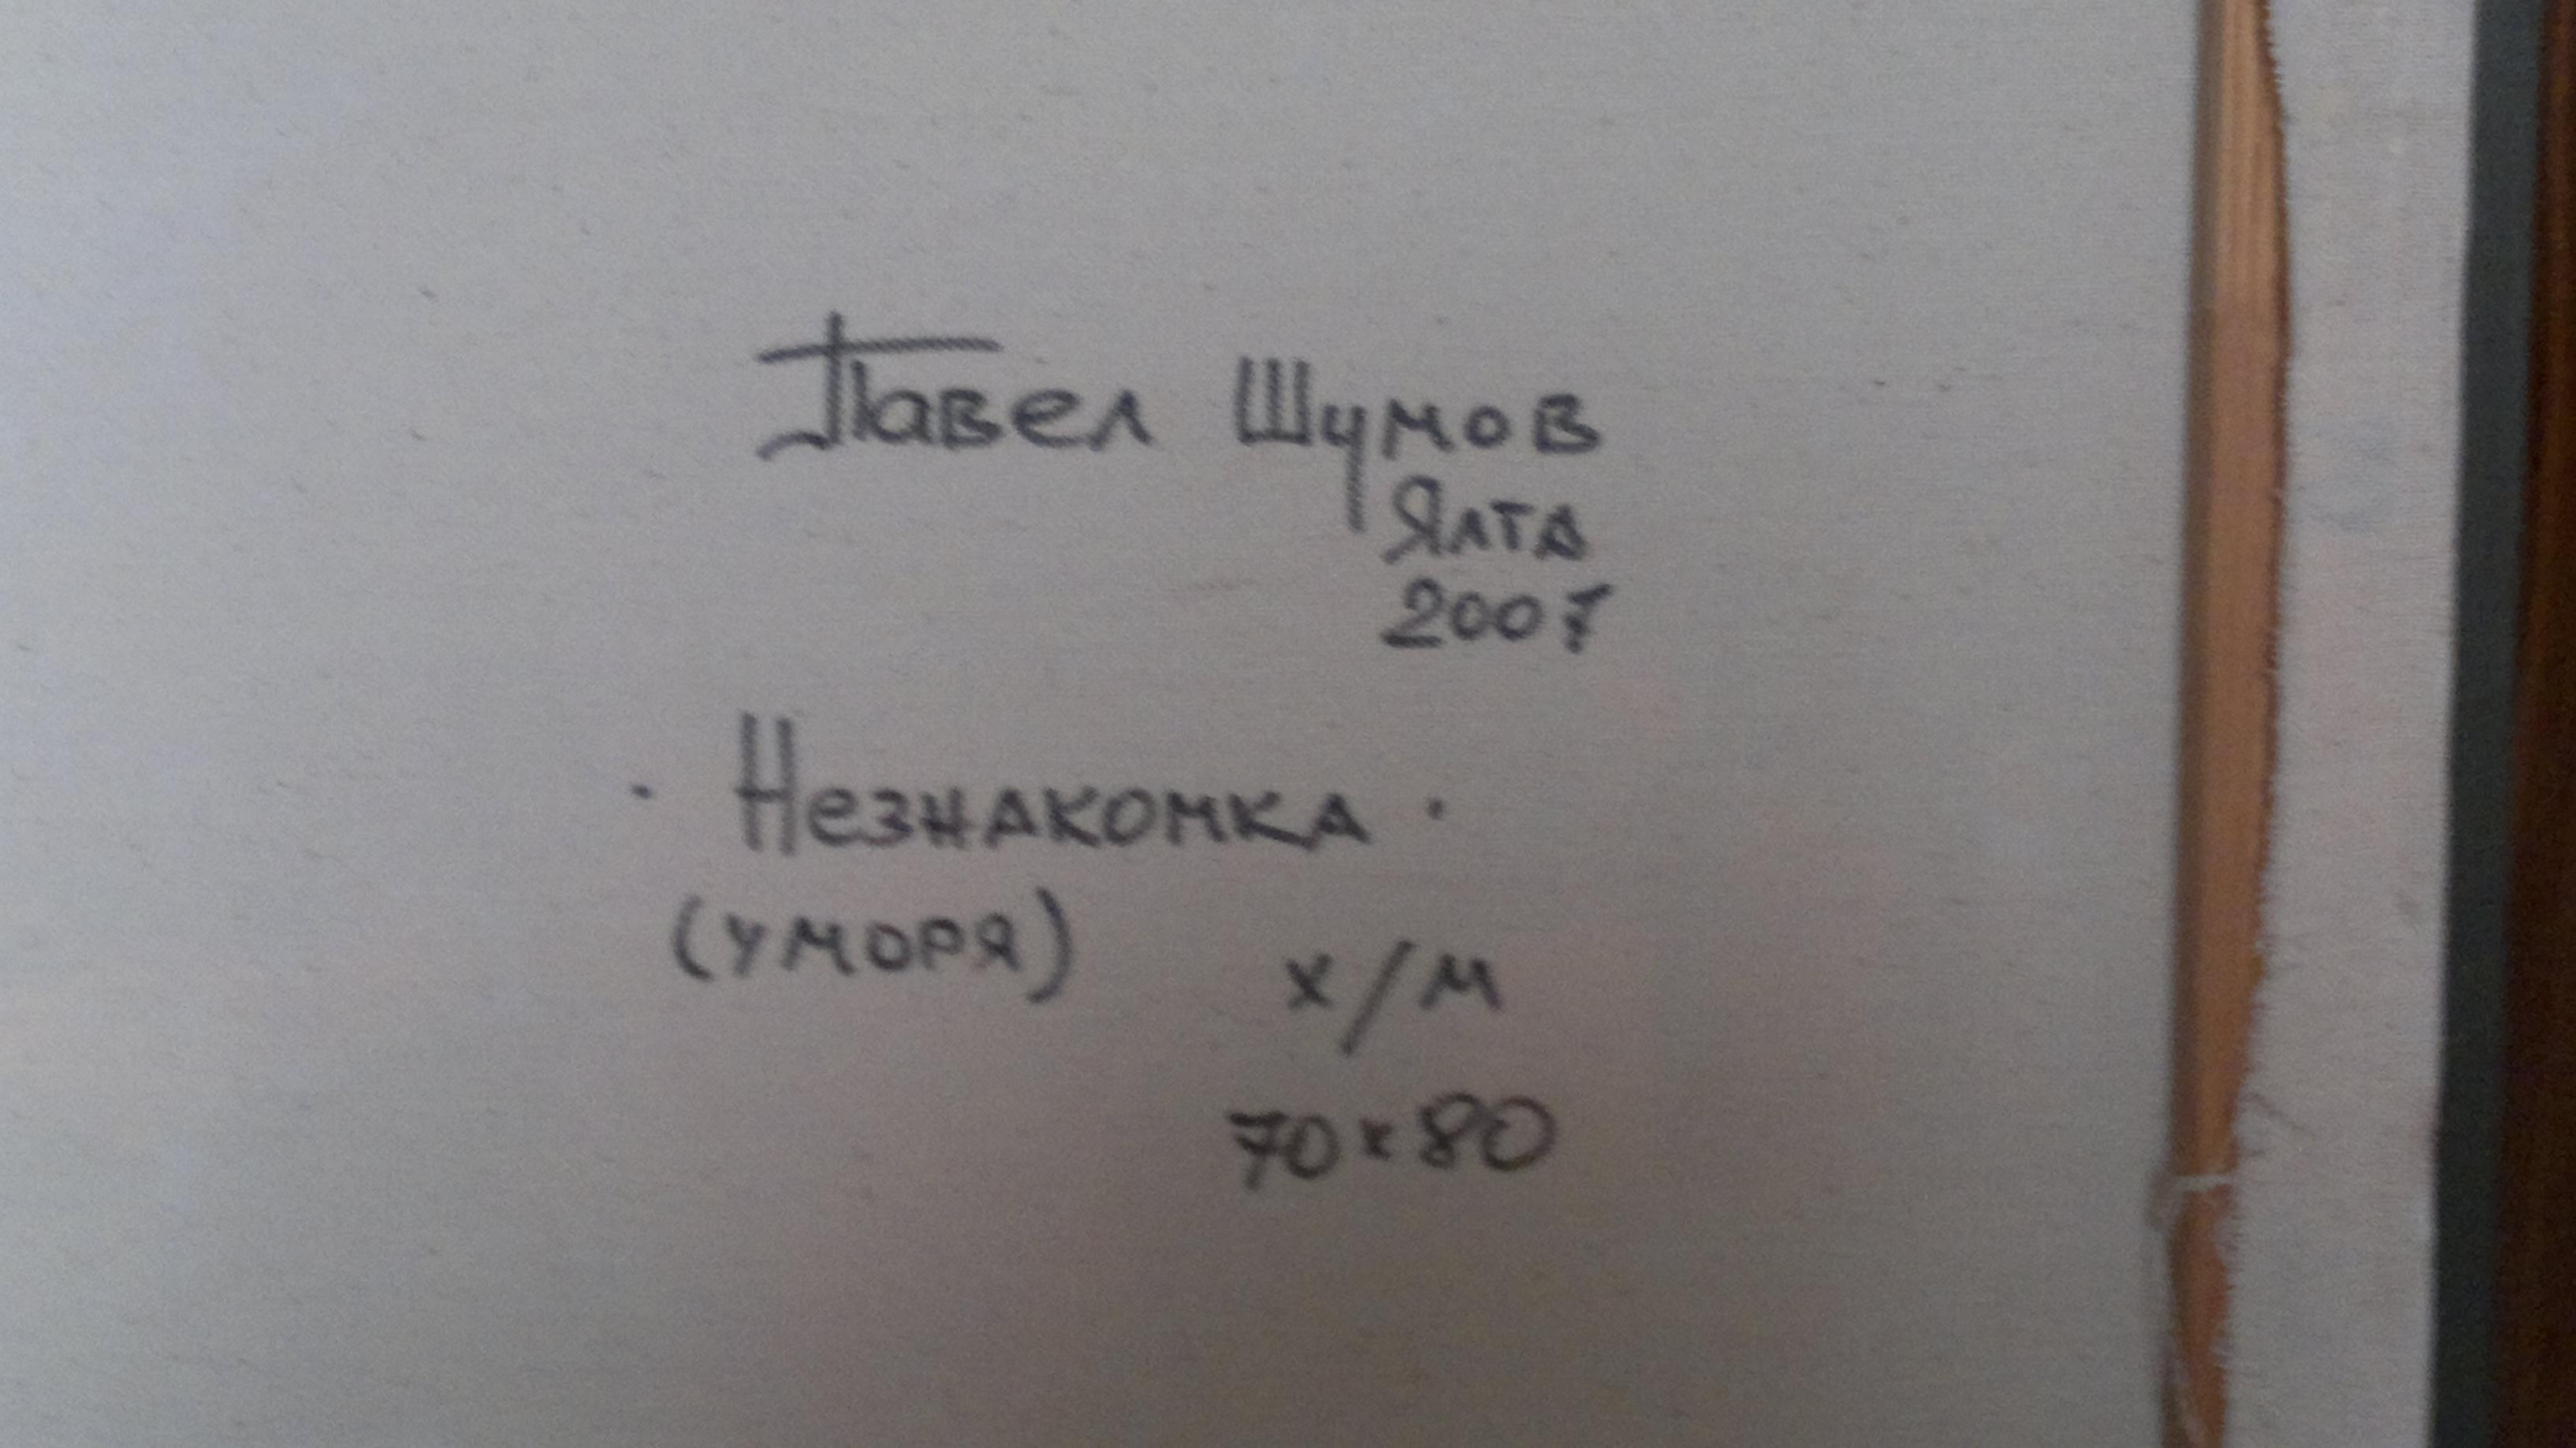 Павел Шумов
Ялта
2007
· Незнакомка ·
(у моря)
х/м
70х80